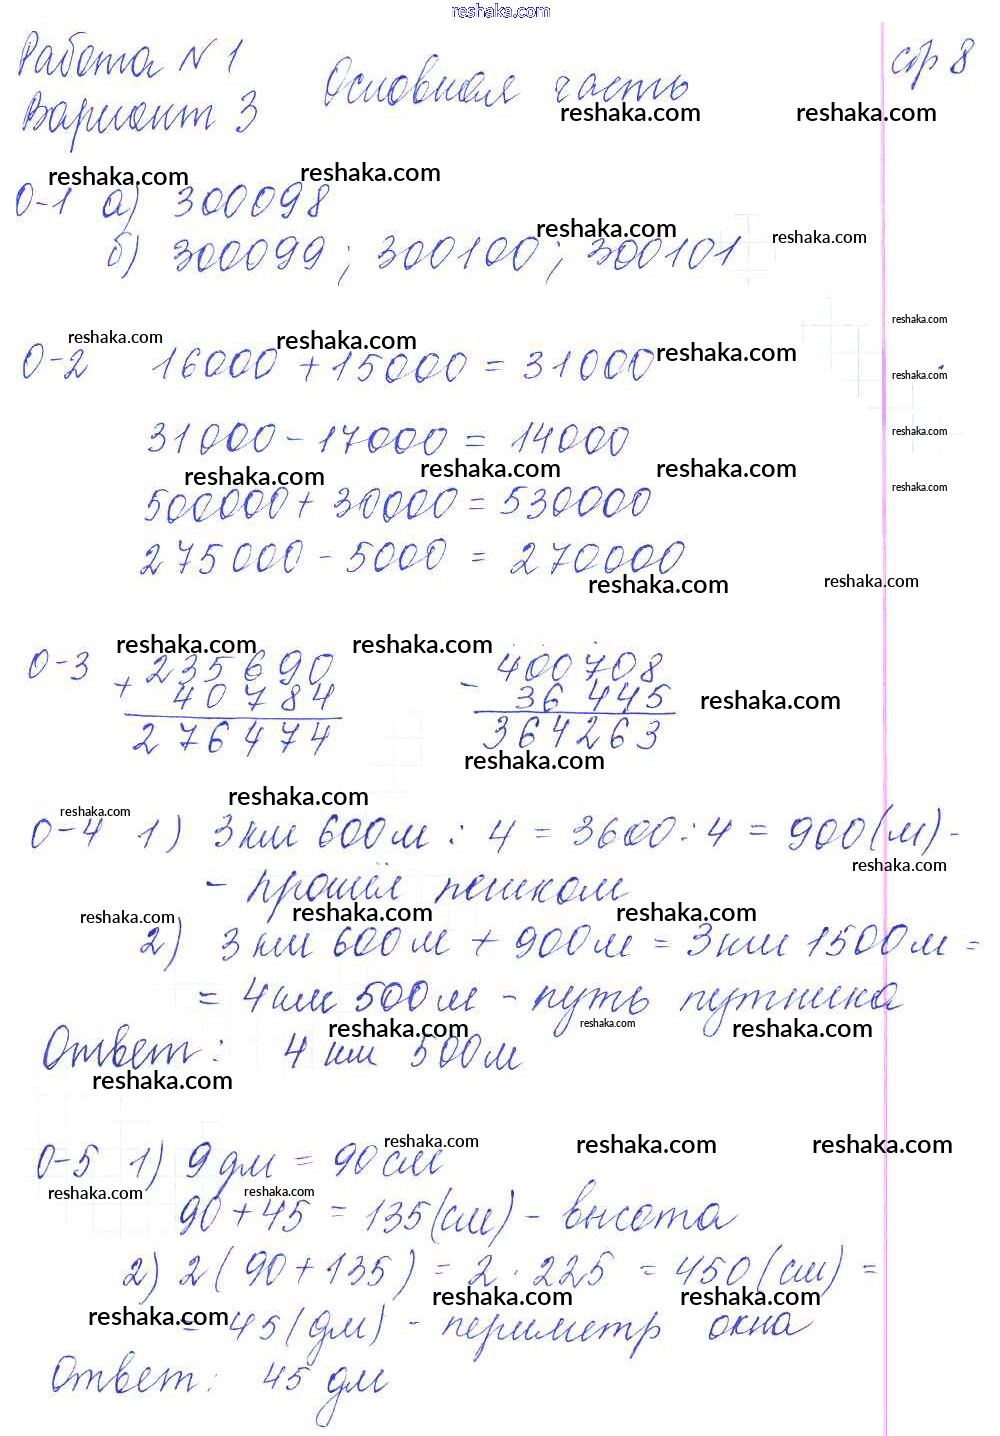 reshaka.com
Работа N 1 стр 8
Вариант 3 Основная часть
reshaka.com reshaka.com
reshaka.com reshaka.com
0-1 а) 300098
reshaka.com reshaka.com
б) 300099; 300100; 300101
reshaka.com
reshaka.com reshaka.com reshaka.com
0-2 16000 + 15000 = 31000
reshaka.com
reshaka.com
31000 - 17000 = 14000
reshaka.com reshaka.com reshaka.com
reshaka.com
500000 + 30000 = 530000
275000 - 5000 = 270000
reshaka.com reshaka.com
reshaka.com reshaka.com
0-3 + 235690 - 400708
40784 36445 reshaka.com
276474 364263
reshaka.com
reshaka.com
reshaka.com
0-4 1) 3 км 600 м : 4 = 3600 : 4 = 900 (м) -
reshaka.com
- прошёл пешком
reshaka.com reshaka.com reshaka.com
2) 3 км 600 м + 900 м = 3 км 1500 м =
= 4 км 500 м - путь путника
reshaka.com reshaka.com reshaka.com
Ответ: 4 км 500 м
reshaka.com
reshaka.com reshaka.com reshaka.com
0-5 1) 9 дм = 90 см
reshaka.com reshaka.com
90 + 45 = 135 (см) - высота
2) 2 (90 + 135) = 2 · 225 = 450 (см) =
reshaka.com reshaka.com reshaka.com
= 45 (дм) - периметр окна
Ответ: 45 дм